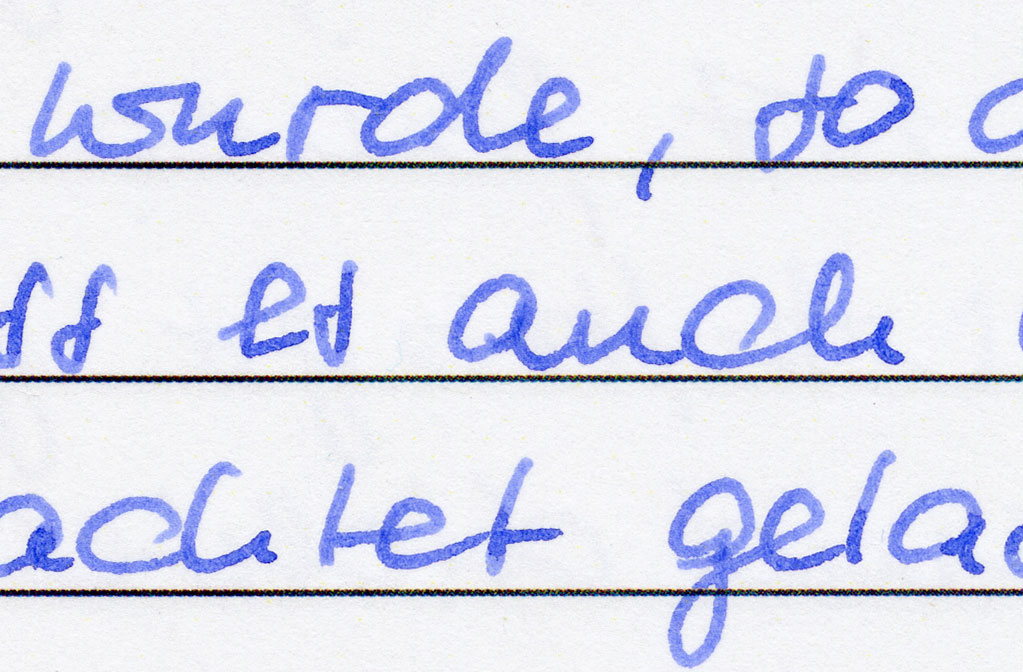 wurde, so
ss es auch
achtet gela